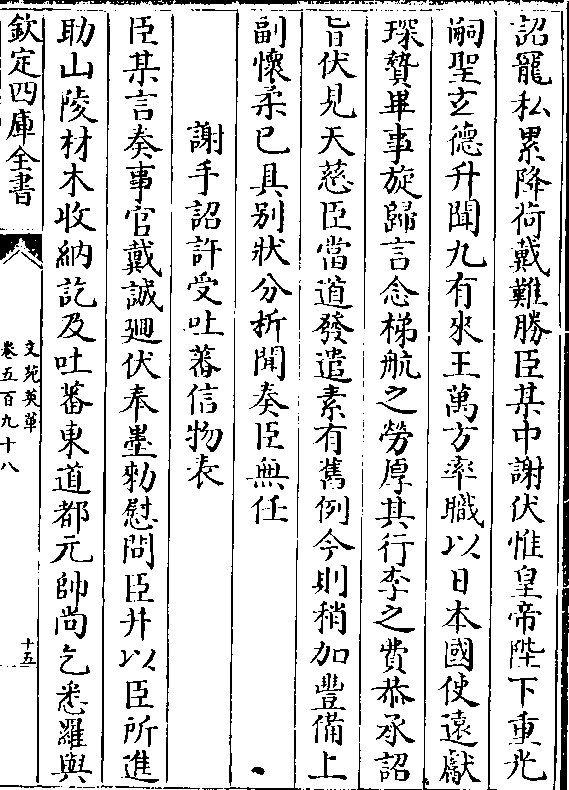 詔寵私累降荷戴難勝臣某中謝伏惟皇帝陛下重光
嗣聖玄德升聞九有來王萬方率職以日本國使遠獻
琛贄畢事旋歸言念梯航之勞厚其行李之費恭承詔
旨伏見天慈臣當道發遣素有舊例今則稍加豐備上
副懷柔已具别狀分析聞奏臣無任
謝手詔許受吐蕃信物表
臣某言奏事官戴誠廻伏奉墨勅慰問臣并以臣所進
助山陵材木收納訖及吐蕃東道都元帥尚乞悉羅與
欽定四庫全書
文苑英華
卷五百九十八
十五